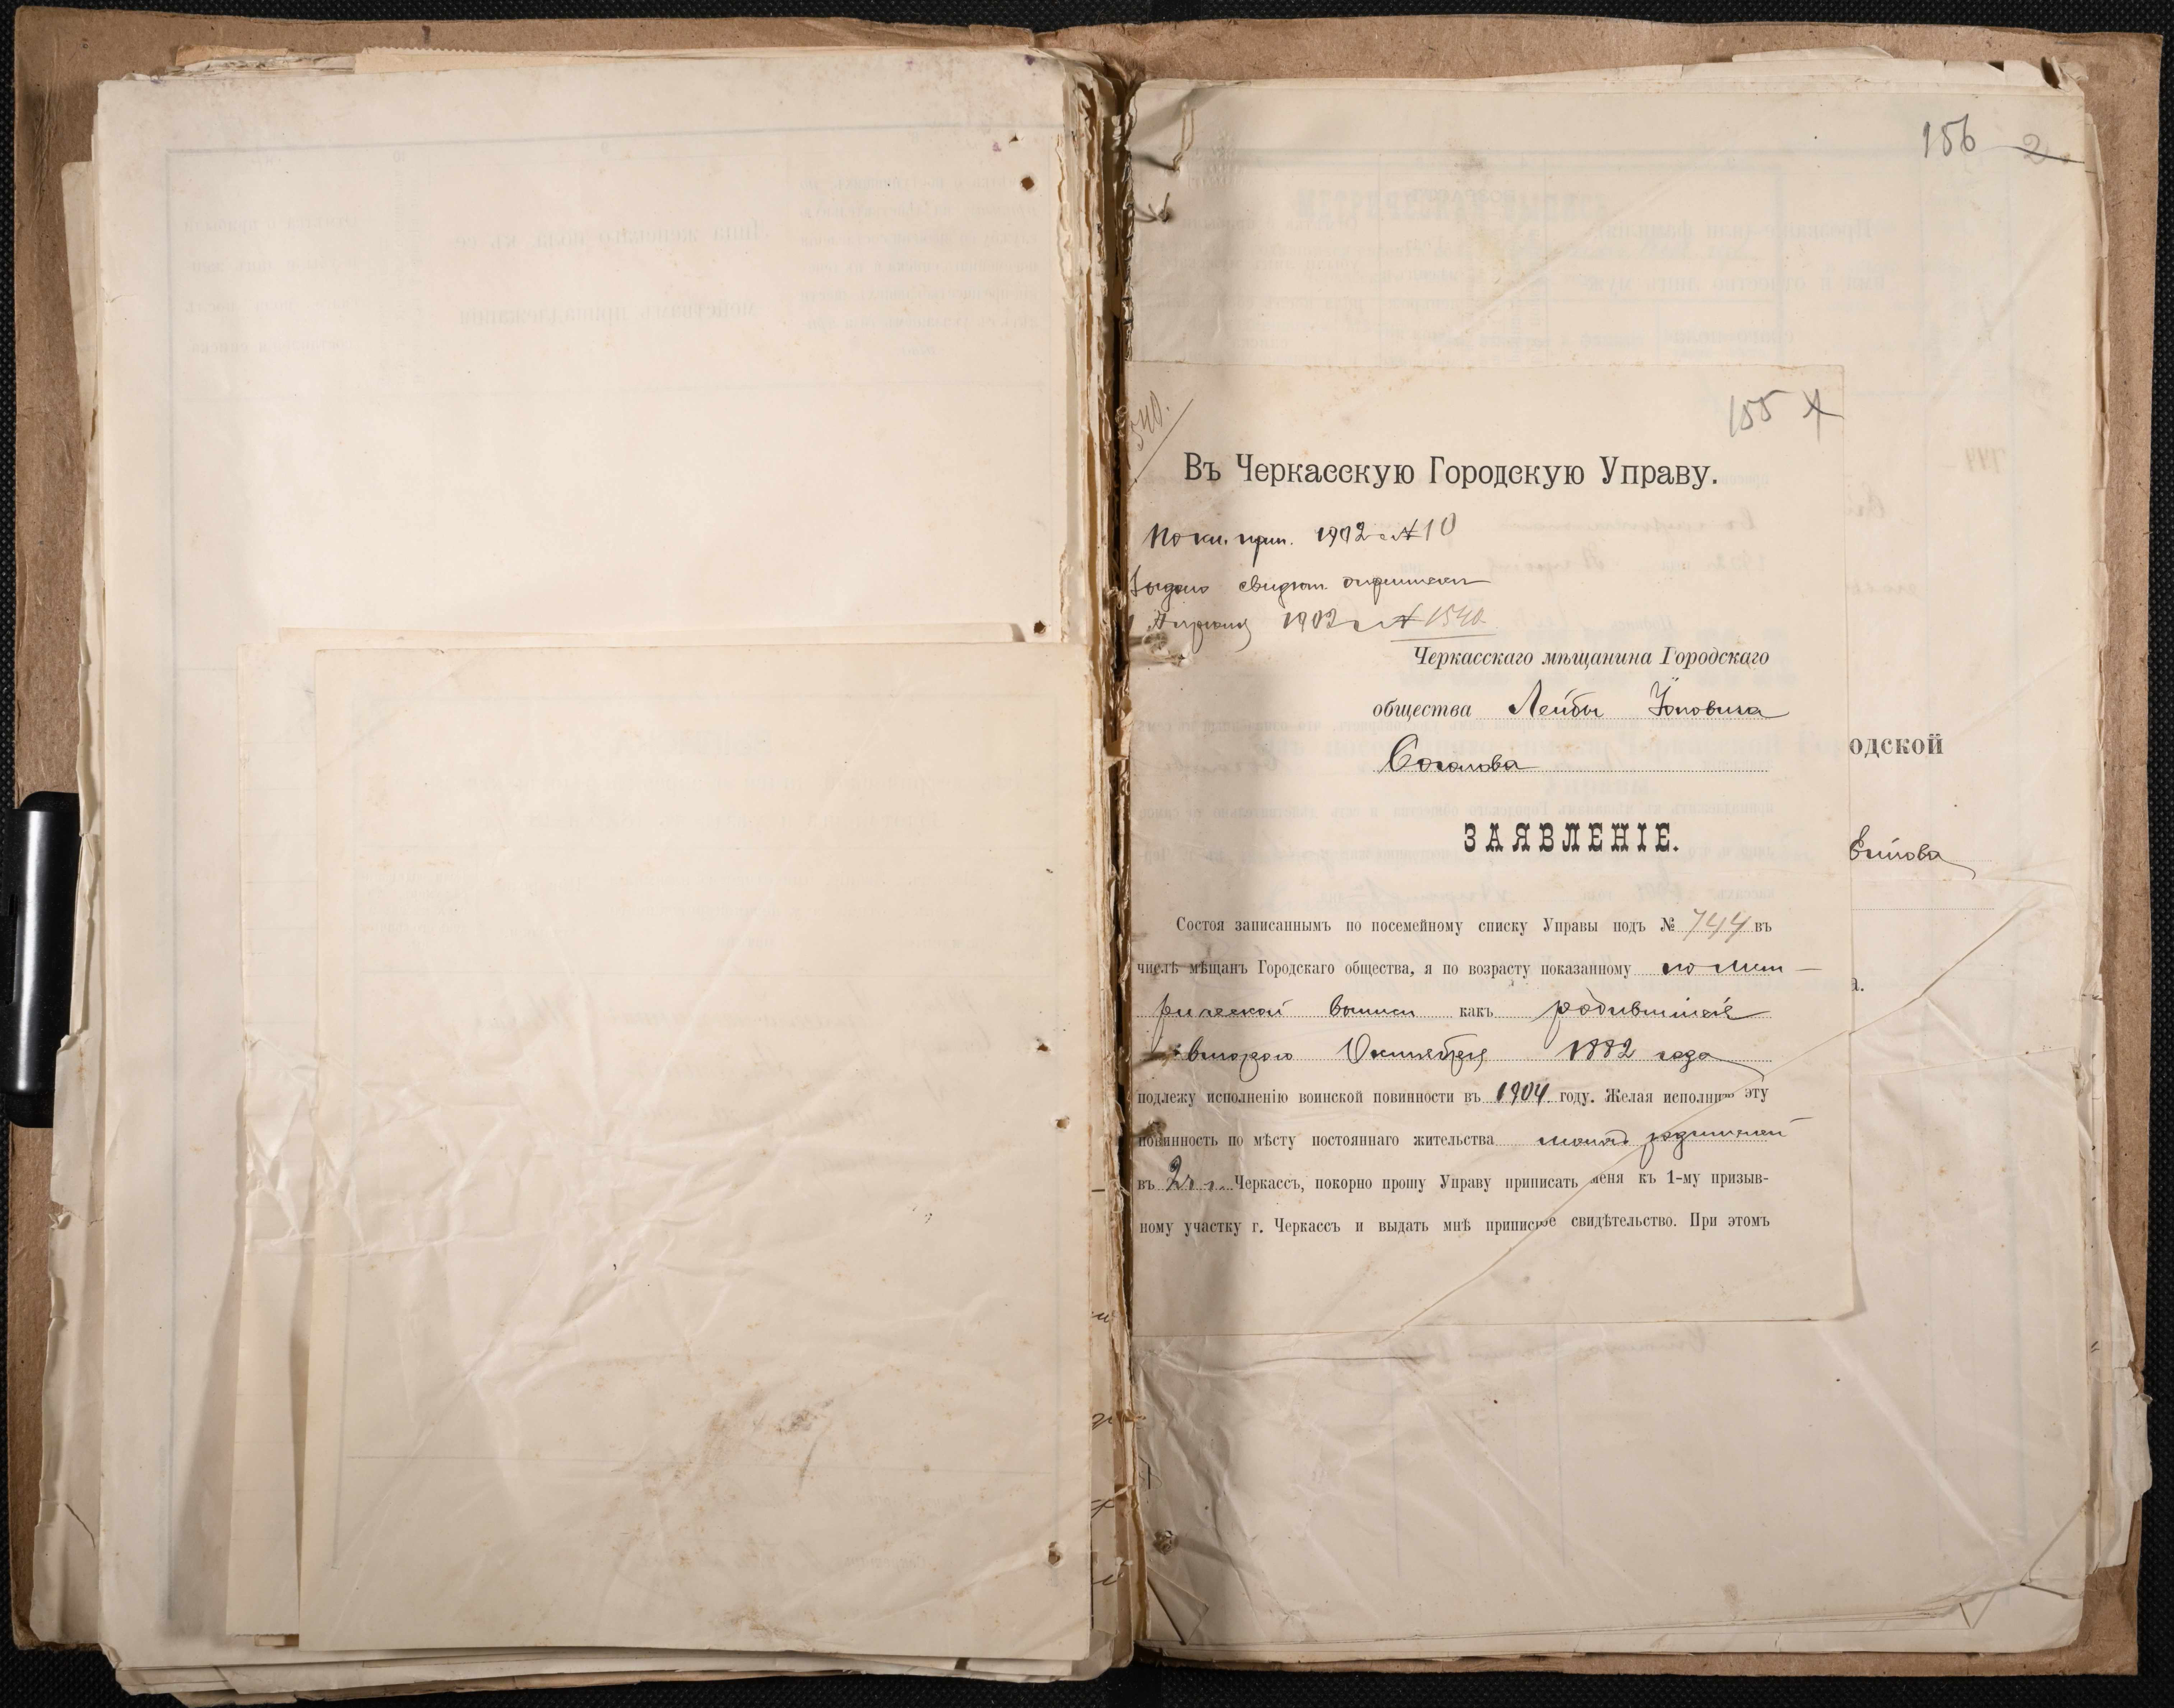 156 2
155
540.
Въ Черкасскую Городскую Управу.
По кн. прип. 1902 г. № 10
Выдано свидѣт. о приписки
Апрѣля 1902 г. № 1540.
Черкасскаго мѣщанина Городскаго
общества Лейбы
Соколова
одской
ЗАЯВЛЕНІЕ.
Состоя записаннымъ по посемейному списку Управы подъ № 744 въ
числѣ мѣщанъ Городскаго общества, я по возрасту показанному по мет-
рической выписи какъ родившійся
второго Октября 1882 года
подлежу исполненію воинской повинности въ 1904 году. Желая исполнить эту
повинность по мѣсту постояннаго жительства
въ г. Черкассъ, покорно прошу Управу приписать меня къ 1-му призыв-
ному участку г. Черкассъ и выдать мнѣ приписное свидѣтельство. При этомъ